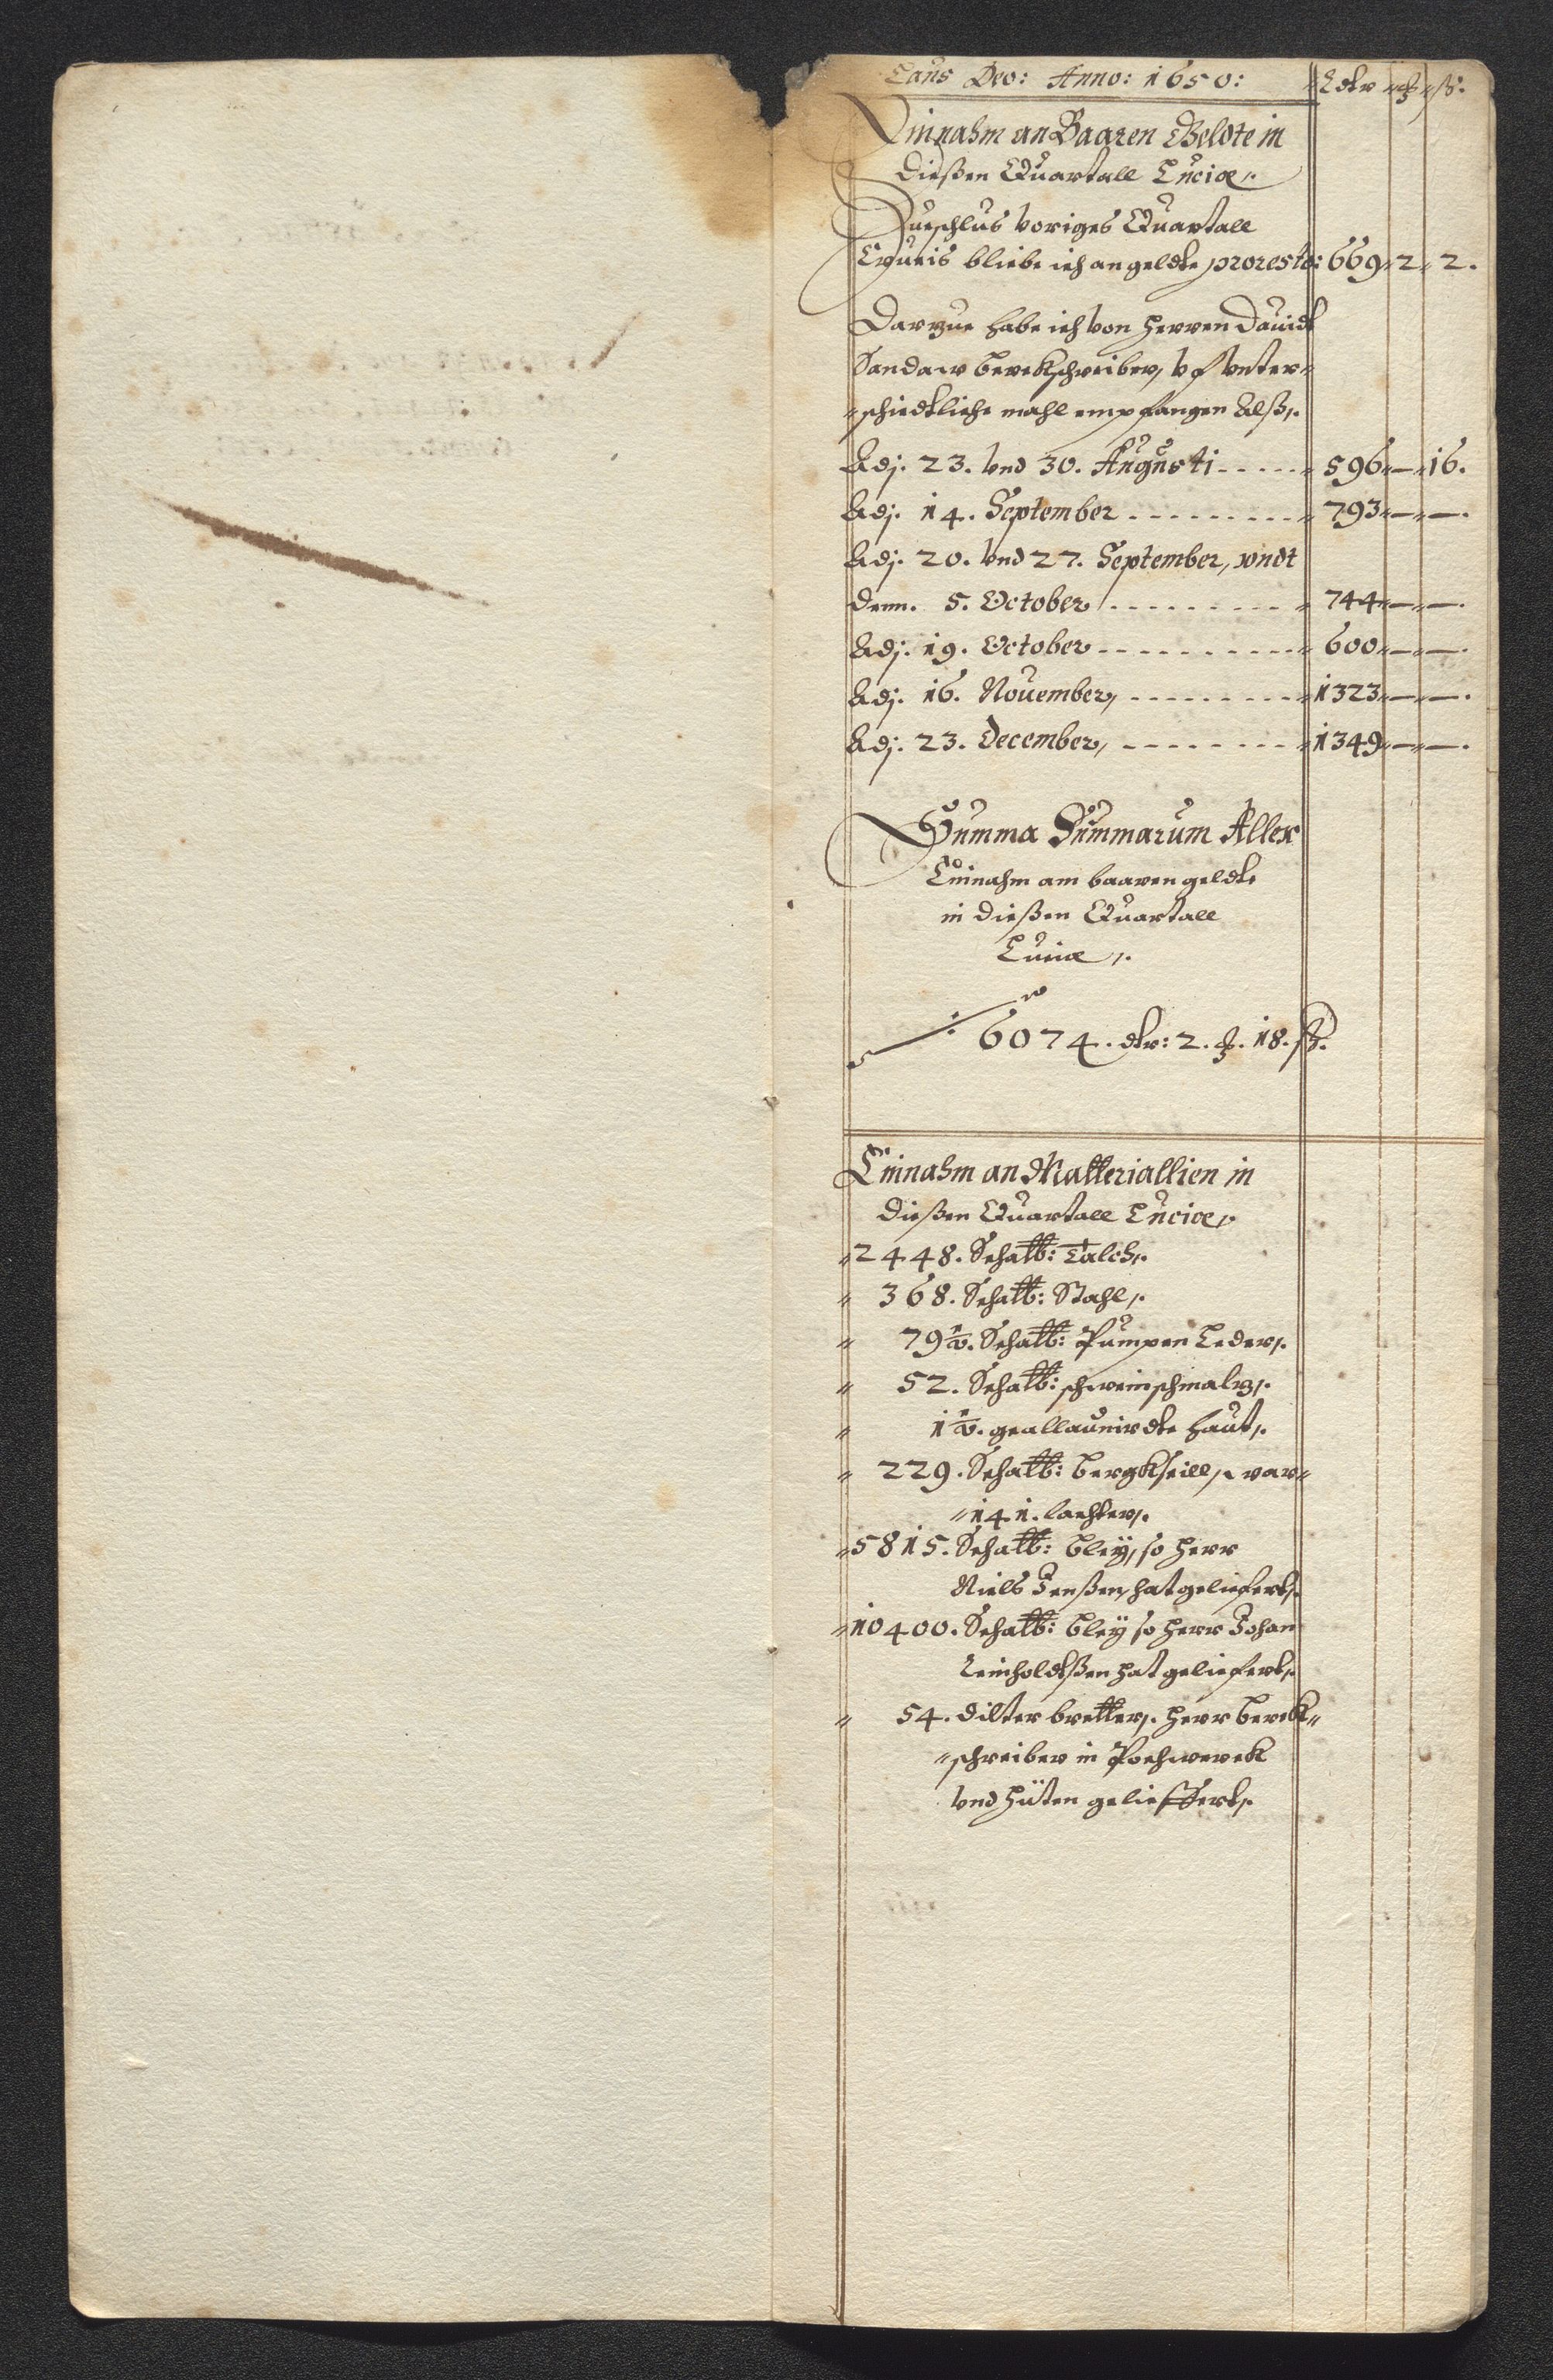 Laus Deo: Anno: 1650: Rdlr ß.
Einnahm an Baaren Geldte in
dießen Quartall Luciæ,.
Zueschlus voriges Quartall
Crucis bliebe ich an geldte pro resto: 669 " 2 " 2.
Darzue habe ich von Herren Dauidt
Sandaw berckschreiber, vf vnter"
"schiedtliche mahl empfangen Alß,.
Adj. 23. vnd 30. Augusti - - - - - " 596 " — " 16.
Adj. 14. September - - - - - - - - - " 793 " — " —.
Adj. 20. vnd 27. September, vndt
denn. 5. October - - - - - - - - - " 744 " — " —.
Adj. 19. October - - - - - - - - - - " 600 " — " —.
Adj. 16. Nouember, - - - - - - - - - " 1323 " — " —.
Adj. 23. December, - - - - - - - - " 1349 " — " —.
Summa Summarum Aller
Einnahm am baaren geldte
in dießen Quartall
Luciæ,.
6074. dlr: 2. 18. ß.
Einnahm an Matteriallien in
dießen Quartall Luciæ,.
" 2448. Schal℔: Talch,.
" 368. Schal℔: Stahl,.
" 79½. Schal℔: Pumpen Leder,.
" 52. Schal℔: schweinschmaltz,.
" 1½. geallaunirdte haut,.
" 229. Schal℔: bergkseill, war"
" 141. lachter,.
" 5815. Schal℔: bley, so herr
Niels Jenßen, hat geliefert,.
" 10400. Schal℔: bley so herr Johan
Reinholdtßen hat geliefert,.
" 54. dilter bretter,. herr berck"
"schreiber in Pochwerck
vnd hüten gelieffert,.